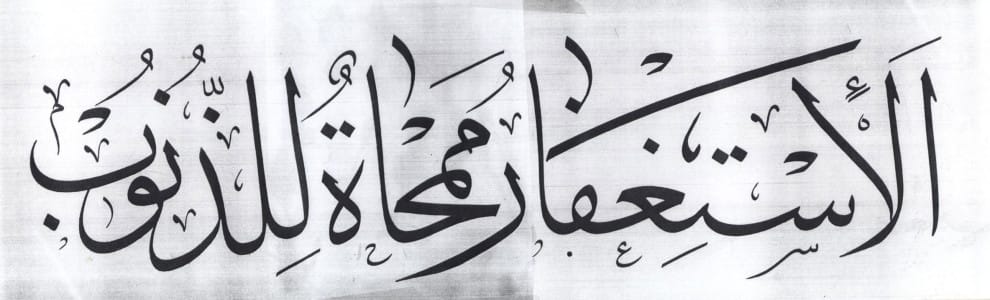 الأستغفار ممحاة للذنوب